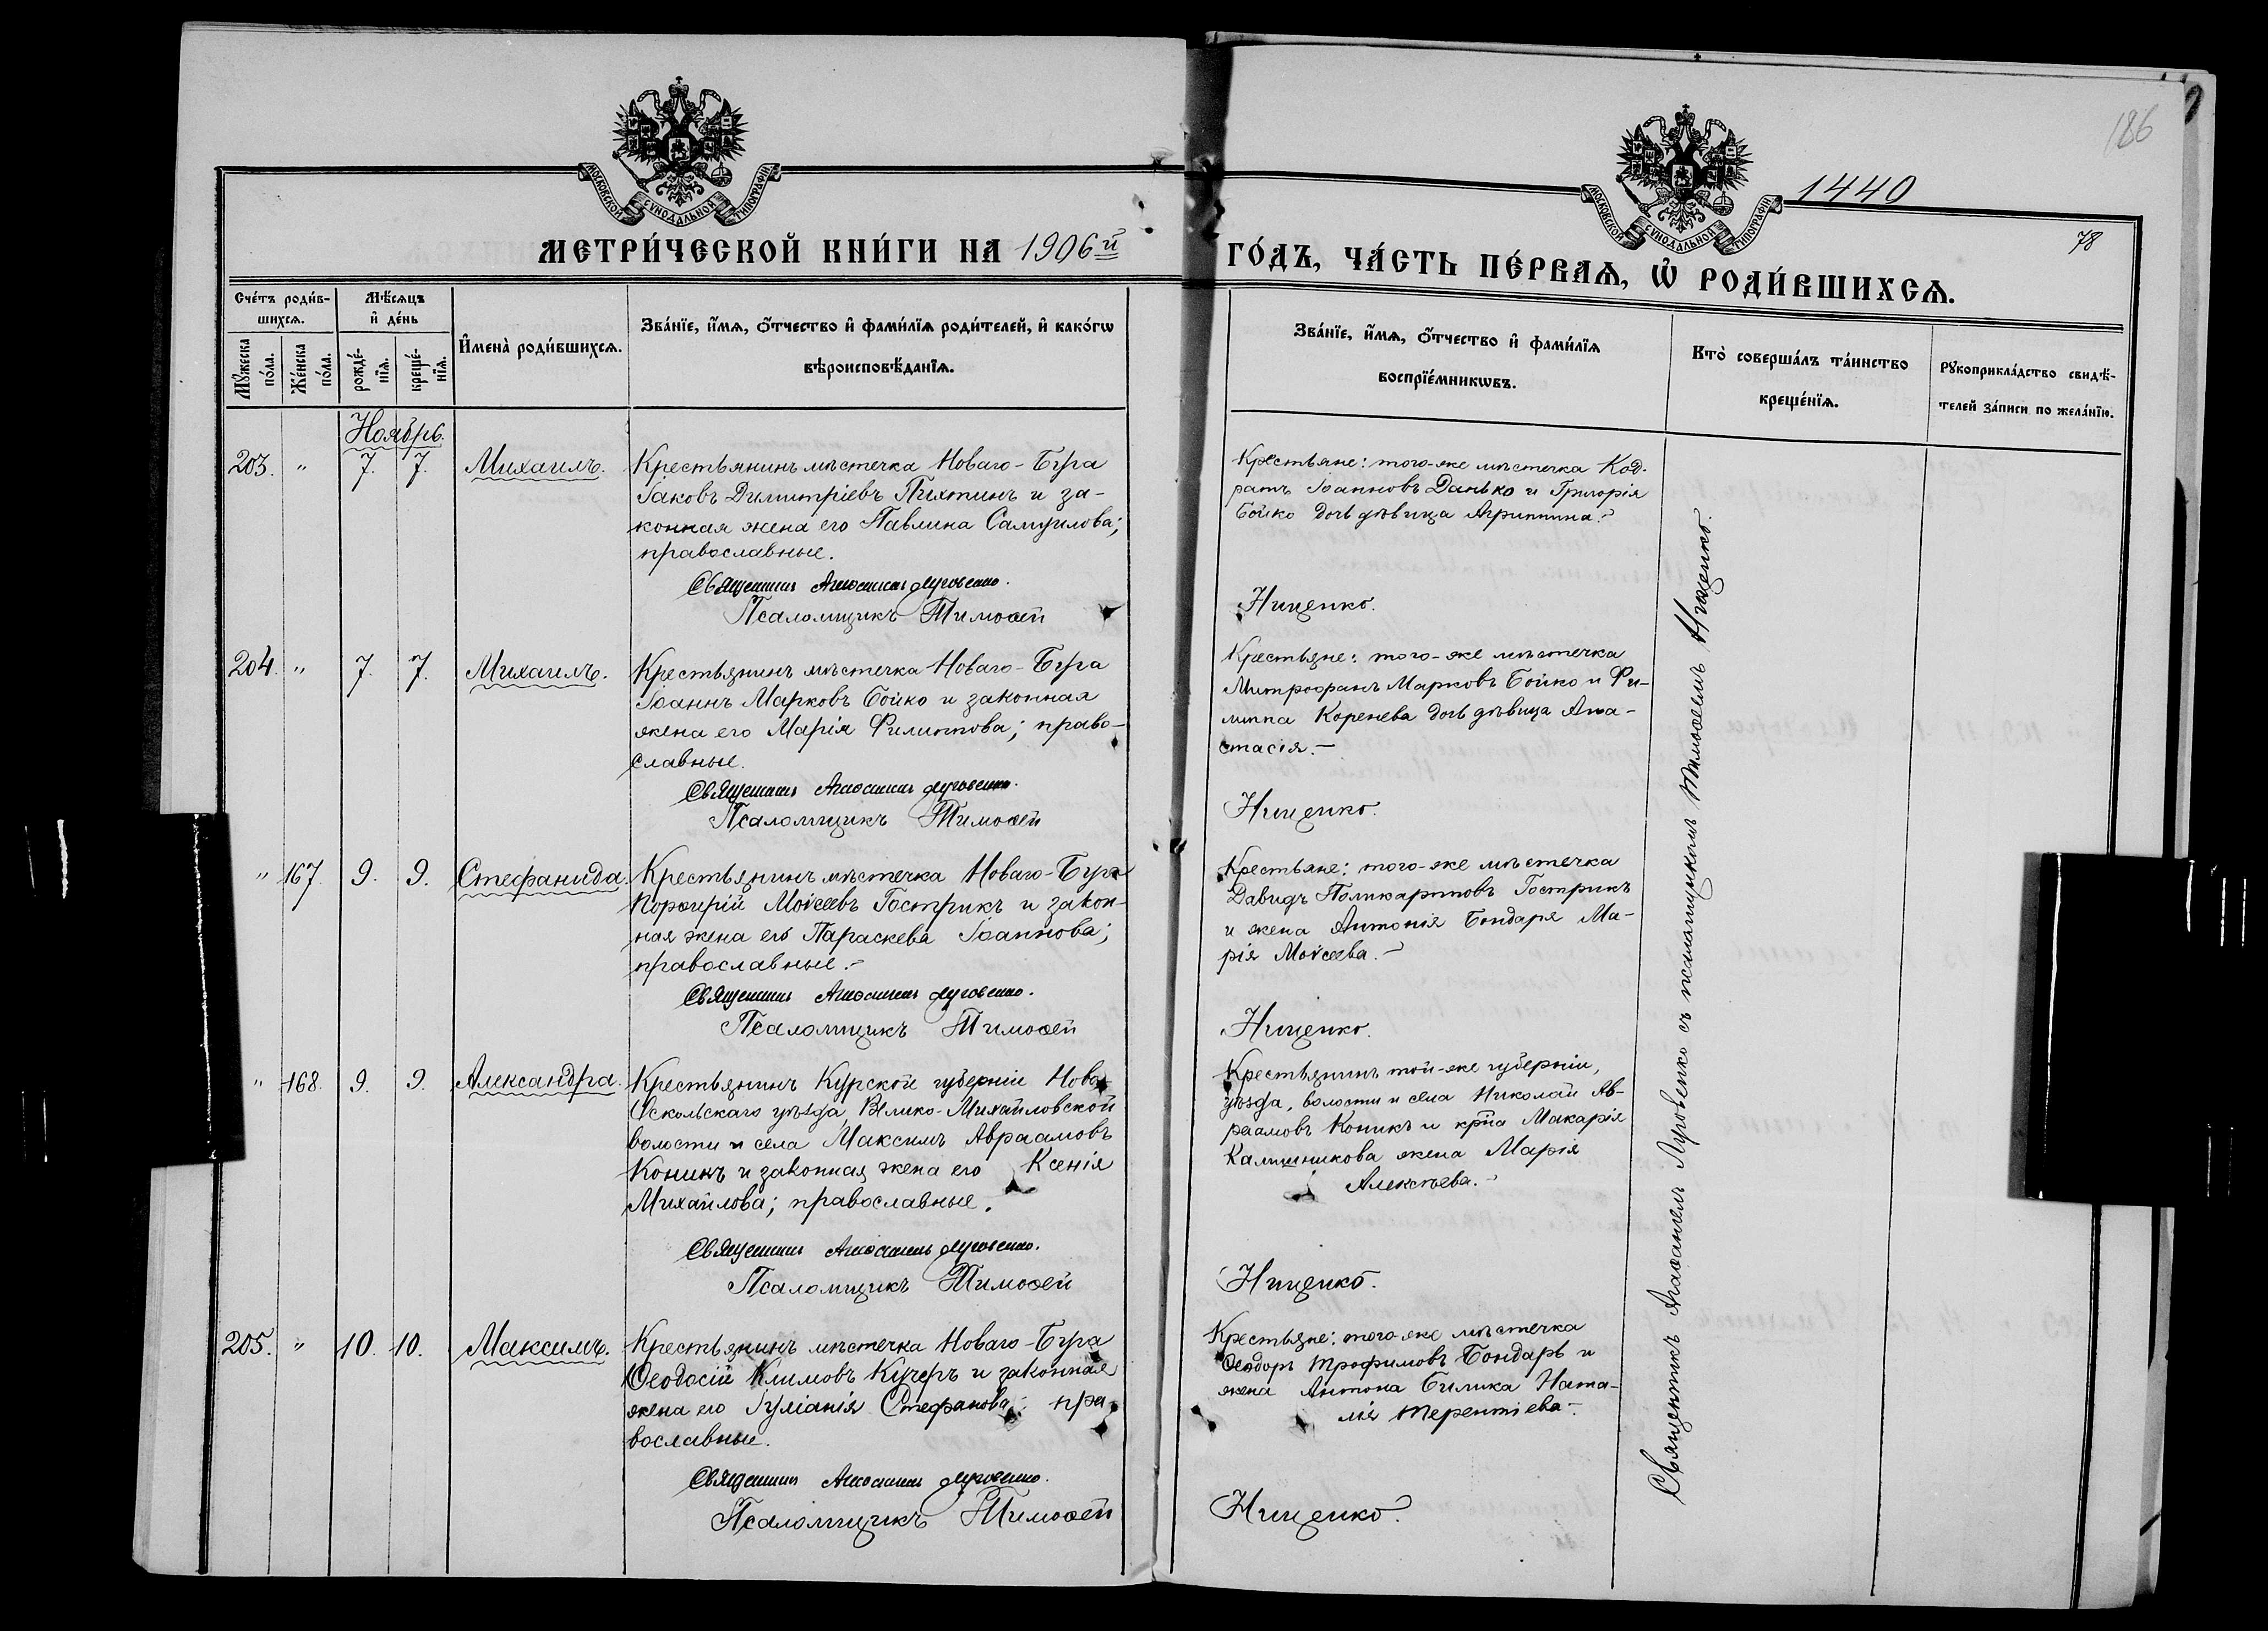 186
1440
78
МОСКОВСКОЙ СѴНОДАЛЬНОЙ ТИПОГРАФІИ
МОСКОВСКОЙ СѴНОДАЛЬНОЙ ТИПОГРАФІИ
МЕТРИ́ЧЕСКОЙ КНИ́ГИ НА 1906й
ГО́ДЪ, ЧА́СТЬ ПЕ́РВАѦ, Ѡ҆ РОДИ́ВШИХСѦ.
Сче́тъ роди́в-
шихсѧ.
Мѣ́сѧцъ
и҆ де́нь
Мꙋ́жеска по́ла.
Же́нска по́ла.
рожде́-
нїѧ.
креще́-
нїѧ.
И҆мена̀ роди́вшихсѧ.
Зва́нїе, и҆́мѧ, ѻ҆́тчество и҆ фами́лїѧ роди́телей, и҆ како́гѡ
вѣроисповѣ́данїѧ.
Зва́нїе, и҆́мѧ, ѻ҆́тчество и҆ фами́лїѧ
воспрїе́мникѡвъ.
Кто̀ соверша́лъ та́инство
креще́нїѧ.
Рꙋкоприкла́дство свидѣ́-
телей за́писи по жела́нїю.
Ноябрь.
203. " 7. 7. Михаилъ.
Крестьянинъ мѣстечка Новаго-Буга
Іаковъ Димитріевъ Пихтинъ и за-
конная жена его Павлина Самуилова;
православные.
Священникъ Агаѳангелъ Луговенко.
Псаломщикъ Тимоѳей
Крестьяне: того-же мѣстечка Код-
ратъ Іоанновъ Данько и Григорія
Бойко дочь дѣвица Агриппина.
Нищенко.
204. " 7. 7. Михаилъ.
Крестьянинъ мѣстечка Новаго-Буга
Іоаннъ Марковъ Бойко и законная
жена его Марія Филиппова; право-
славные.
Священникъ Агаѳангелъ Луговенко.
Псаломщикъ Тимоѳей
Крестьяне: того-же мѣстечка
Митрофанъ Марковъ Бойко и Фи-
липпа Коренева дочь дѣвица Ана-
стасія.
Нищенко.
" 167. 9. 9. Стефанида.
Крестьянинъ мѣстечка Новаго-Буга
Порфирій Моѵсеевъ Гострикъ и закон-
ная жена его Параскева Іоаннова;
православные.
Священникъ Агаѳангелъ Луговенко.
Псаломщикъ Тимоѳей
Крестьяне: того-же мѣстечка
Давидъ Поликарповъ Гострикъ
и жена Антонія Бондаря Ма-
рія Моѵсеева.
Нищенко.
" 168. 9. 9. Александра.
Крестьянинъ Курской губерніи Ново-
Оскольскаго уѣзда, Велико-Михайловской
волости и села Максимъ Авраамовъ
Коникъ и законная жена его Ксенія
Михайлова; православные.
Священникъ Агаѳангелъ Луговенко.
Псаломщикъ Тимоѳей
Крестьянинъ той-же губерніи,
уѣзда, волости и села Николай Ав-
раамовъ Коникъ и кр̃на Макарія
Калашникова жена Марія
Алексѣева.
Нищенко.
205. " 10. 10. Максимъ.
Крестьянинъ мѣстечка Новаго-Буга
Ѳеодосій Климовъ Кучеръ и законная
жена его Іуліанія Стефанова; пра-
вославные.
Священникъ Агаѳангелъ Луговенко.
Псаломщикъ Тимоѳей
Крестьяне: того-же мѣстечка
Ѳеодоръ Трофимовъ Бондарь и
жена Антона Билика Ната-
лія Терентіева.
Нищенко.
Священникъ Агаѳангелъ Луговенко съ псаломщикомъ Тимоѳеемъ Нищенко.